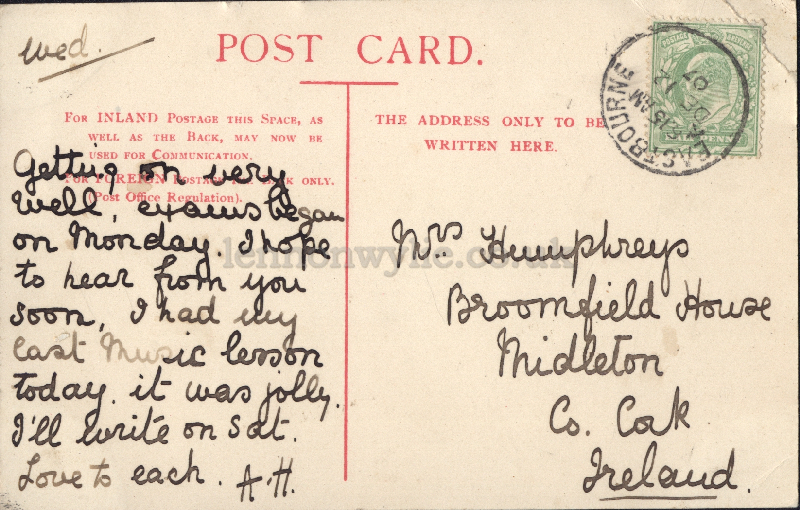 Wed.
POST CARD.
For INLAND Postage this Space, as
well as the Back, may now be
used for Communication.
For FOREIGN Postage the Back only.
(Post Office Regulation).
THE ADDRESS ONLY TO BE
WRITTEN HERE.
EASTBOURNE
DE 12
07
Getting on very
well, exams began
on Monday. I hope
to hear from you
soon, I had my
last Music lesson
today. it was jolly.
I'll write on Sat.
Love to each. A.H.
Mrs Humphreys
Broomfield House
Midleton
Co. Cork
Ireland.
lennonwylie.co.uk